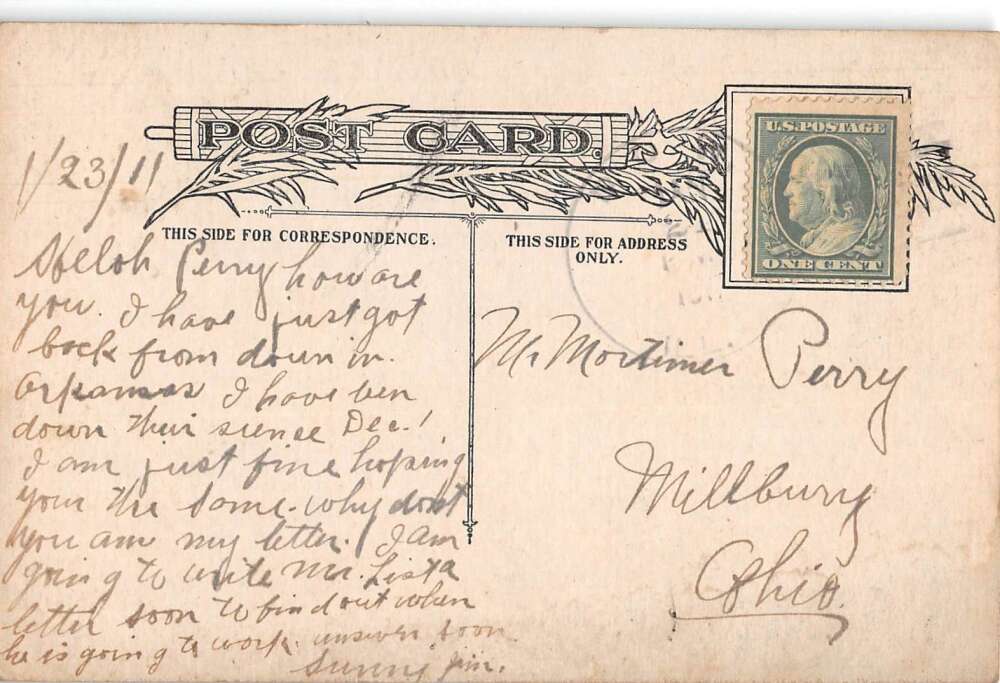 POST CARD.
U.S. POSTAGE
ONE CENT
THIS SIDE FOR CORRESPONDENCE.
THIS SIDE FOR ADDRESS
ONLY.
1/23/11
Heloh Perry how are
you. I have just got
back from down in.
Arkansas I have ben
down thir sience Dec. 1
I am just fine hoping
your the same. why dont
you ans my letter. I am
going to write Mr. List a
letter soon to find out when
he is going to work. answer soon
Sunny Jim.
Mr Mortimer Perry
Millbury
Ohio.